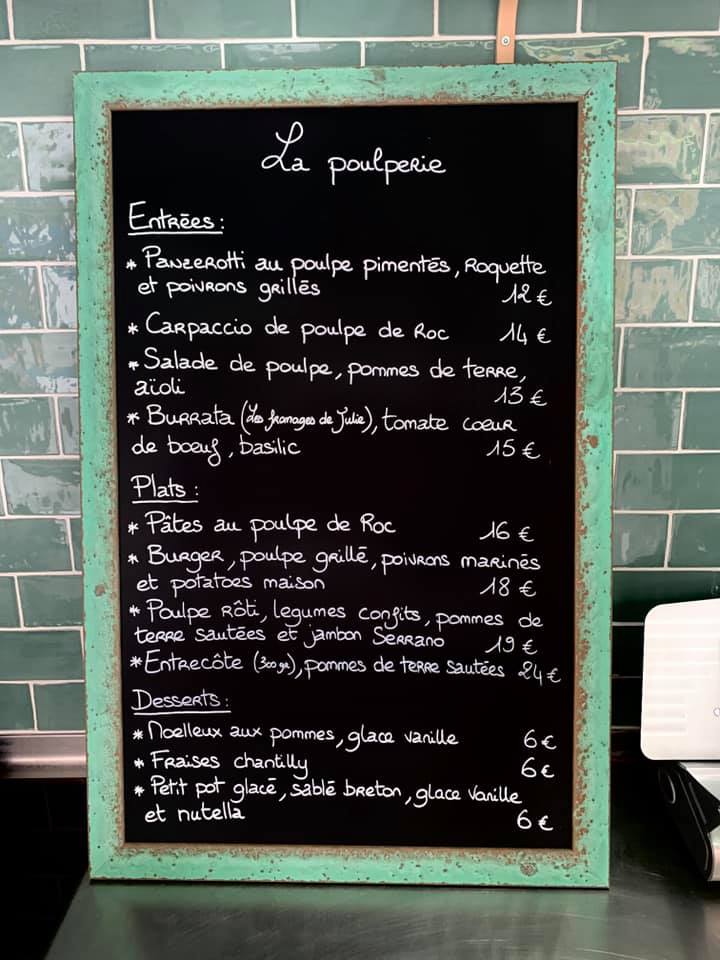 La poulperie
Entrées :
* Panzerotti au poulpe pimentés, Roquette
et poivrons grillés 12 €
* Carpaccio de poulpe de Roc 14 €
* Salade de poulpe, pommes de terre,
aïoli 13 €
* Burrata (Les fromages de Julie), tomate coeur
de boeuf, basilic 15 €
Plats :
* Pâtes au poulpe de Roc 16 €
* Burger, poulpe grillé, poivrons marinés
et potatoes maison 18 €
* Poulpe rôti, legumes confits, pommes de
terre sautées et jambon Serrano 19 €
* Entrecôte (300gr), pommes de terre sautées 24 €
Desserts :
* Moelleux aux pommes, glace vanille 6 €
* Fraises chantilly 6 €
* Petit pot glacé, sablé breton, glace vanille
et nutella 6 €